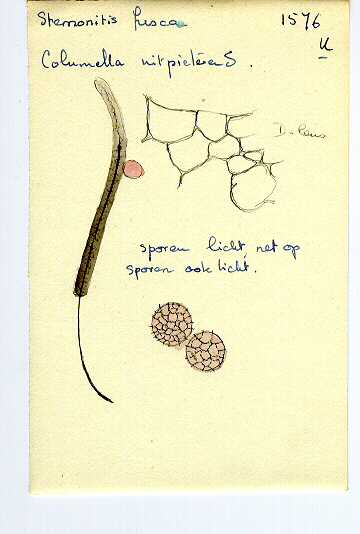 Stemonitis fusca 1576
Columella uitpieterS.
sporen licht, net op
sporen ook licht.